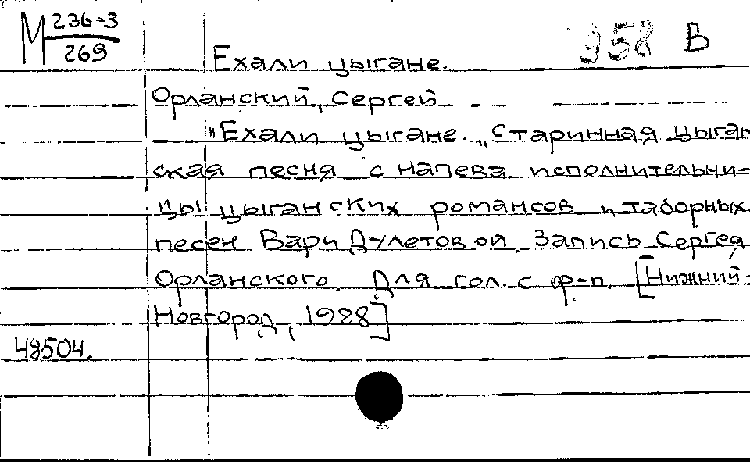 М 236-3
269
958 В
Ехали цыгане.
Орланский, Сергей
"Ехали цыгане." Старинная цыган
ская песня с напева исполнительни-
цы цыганских романсов и таборных
песен Вари Дулетовой. Запись Сергея
Орланского. Для гол. с ф-п. [Нижний-
Новгород, 1928]
48504.